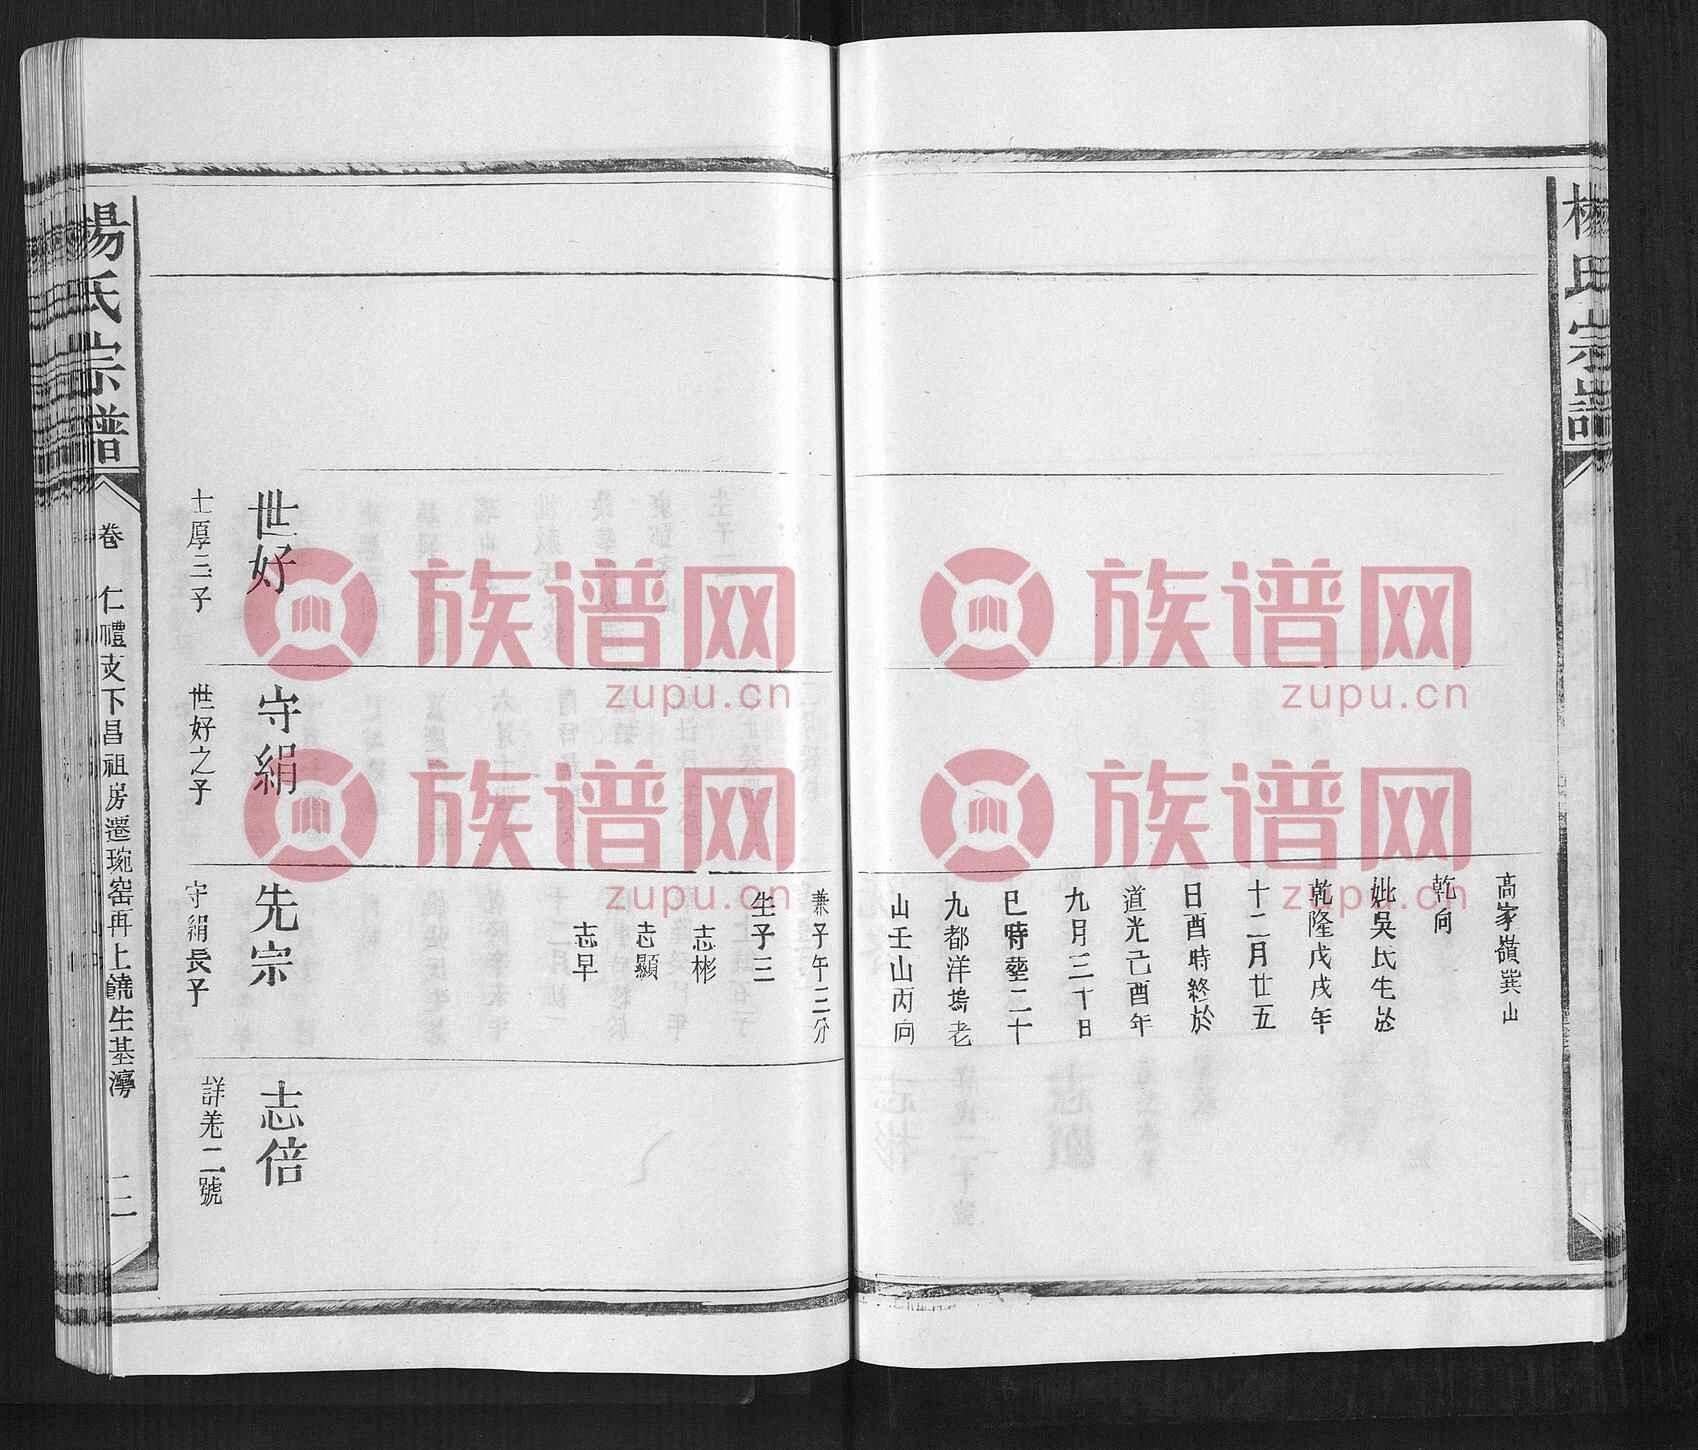 楊氏宗譜
高家嶺巽山
乾向
妣吳氏生於
乾隆戊戌年
十二月廿五
日酉時終於
道光己酉年
九月三十日
巳時塟二十
九都洋塢老
山壬山丙向
兼子午三分
生子三
志彬
志顯
志早
世好
士厚三子
守絹
世好之子
先宗
守絹長子
志倍
詳羌二號
楊氏宗譜
卷
仁禮支下昌祖房遷琬窑再上饒生基灣
三
族谱网
zupu.cn
族谱网
zupu.cn
族谱网
zupu.cn
族谱网
zupu.cn